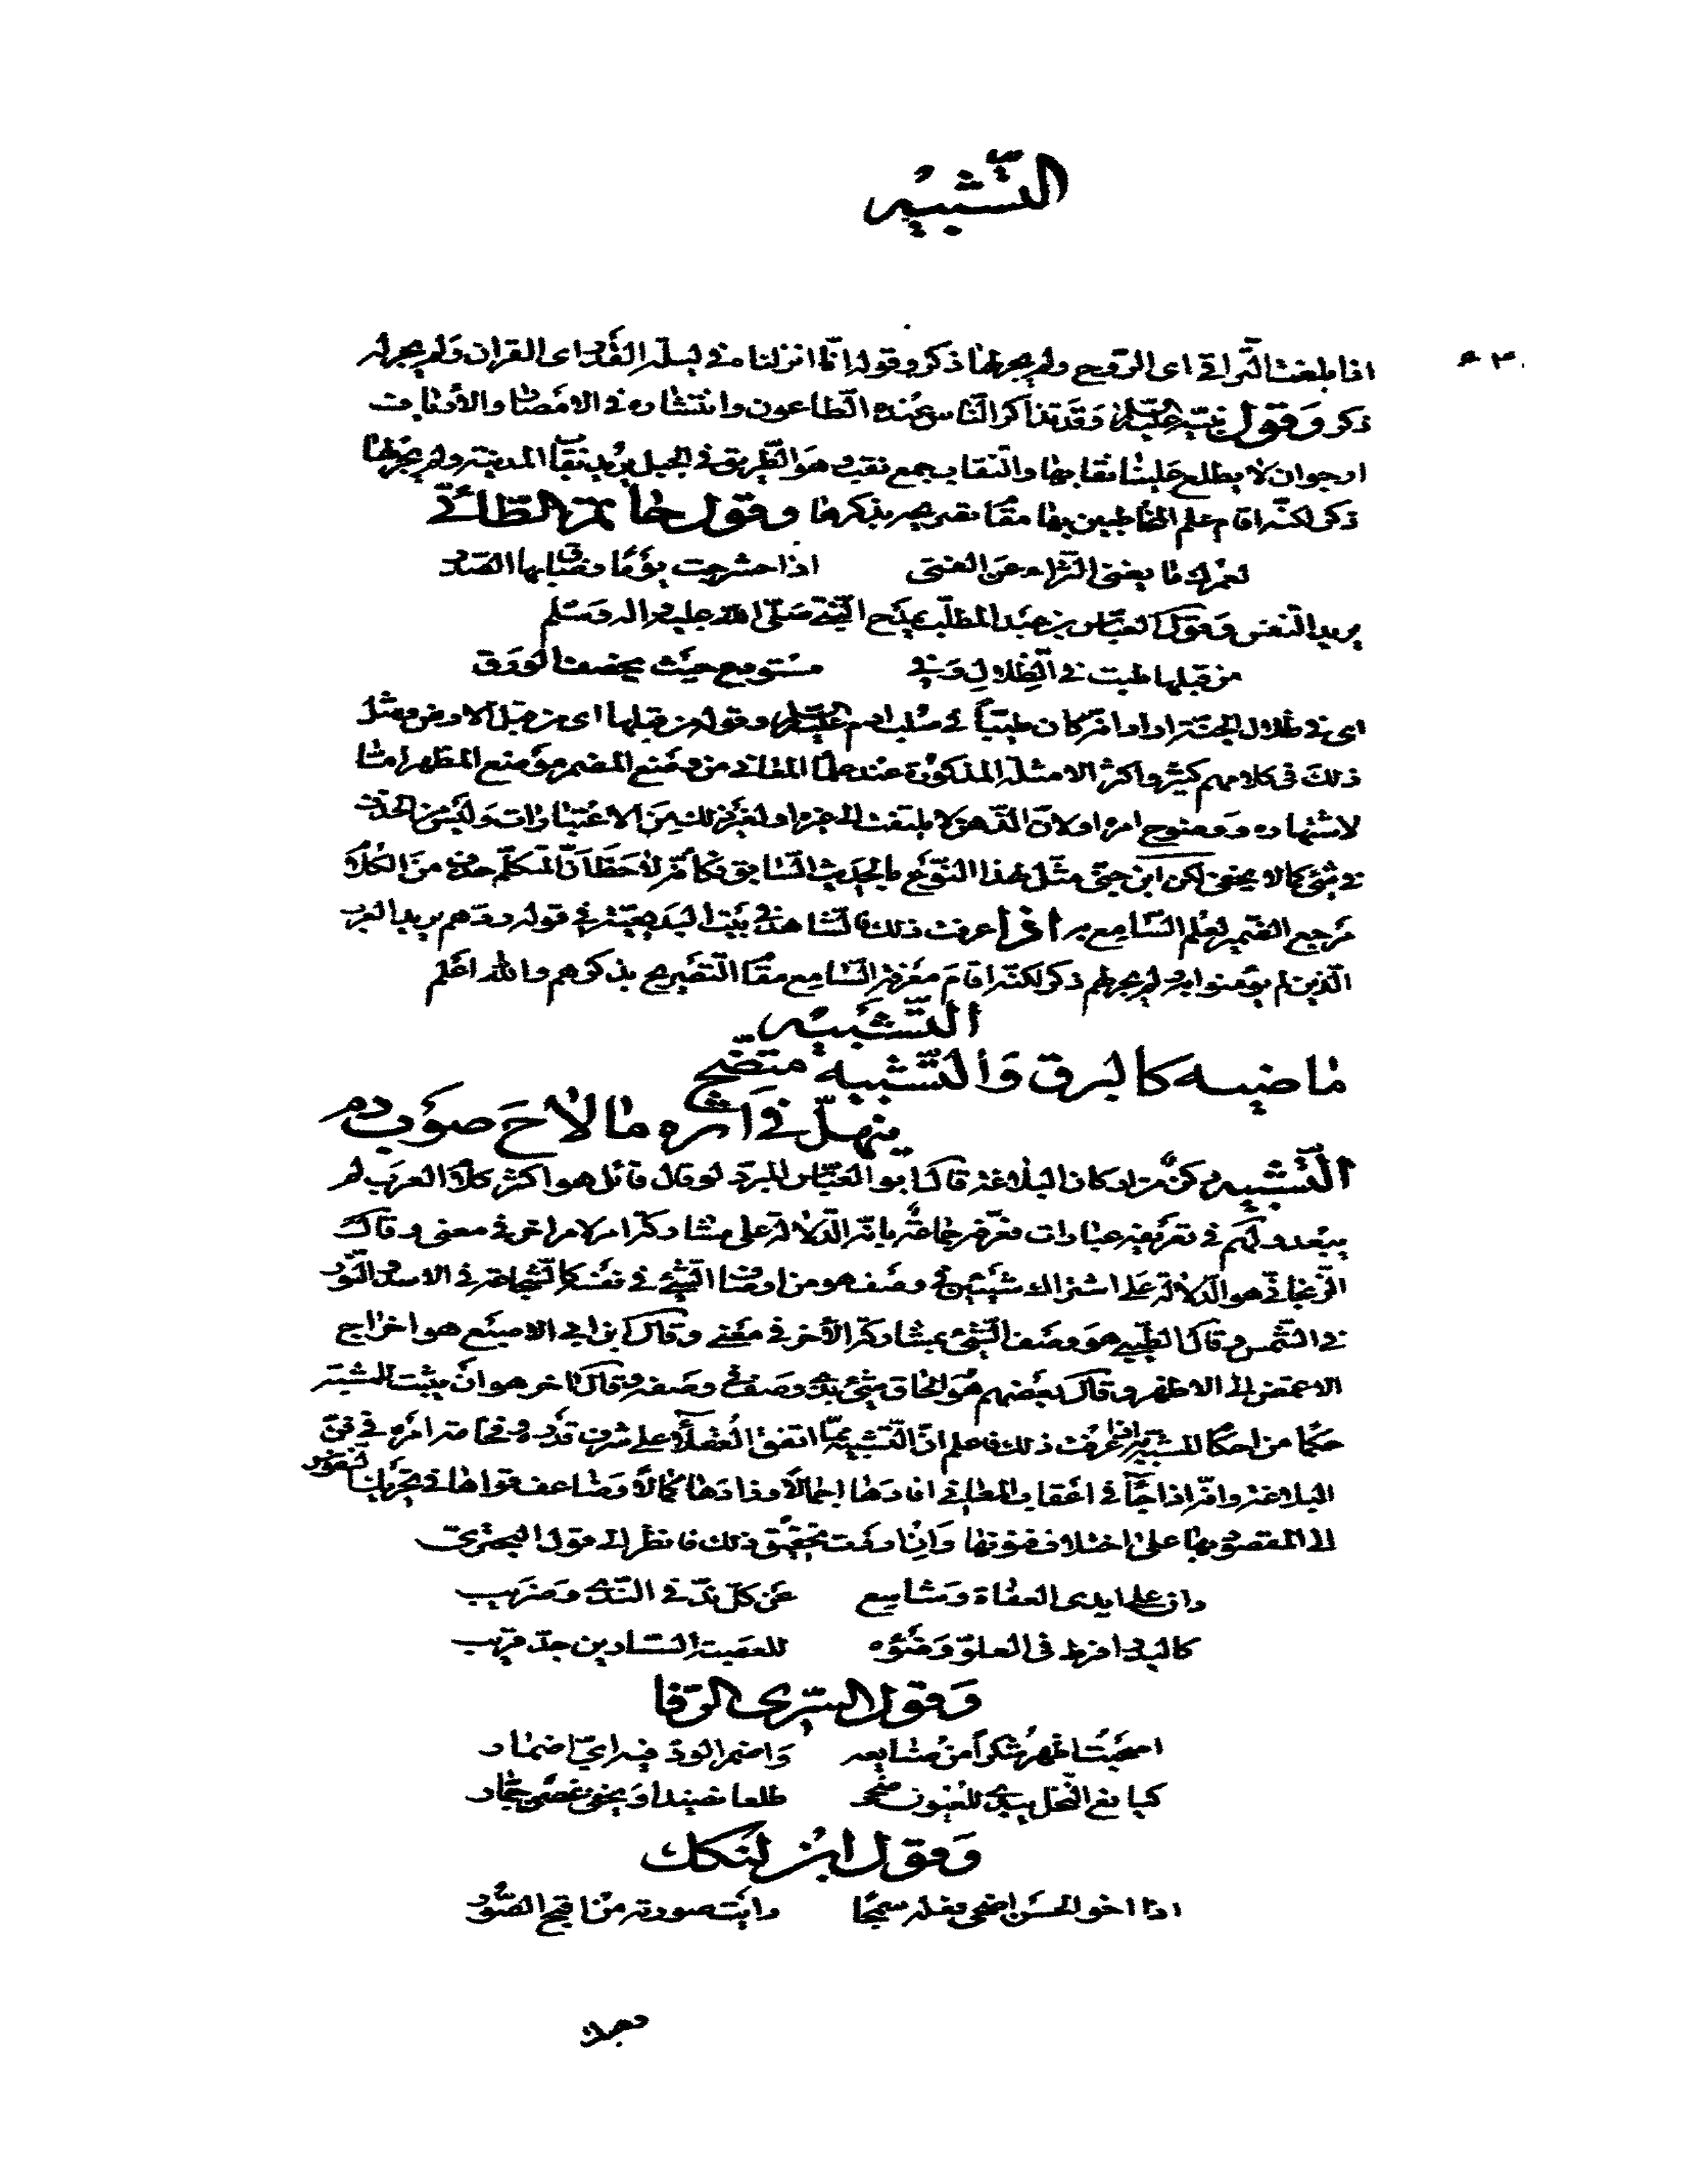 التّشبيه
اذا بلغت التّراقي اى الرّوح ولم يجر لها ذكر وقوله انّا انزلناه في ليلة القدر اى القران وَلم يجر له
ذكر وَقول نبيّه عليه السّلام وَقد تذاكر النّاس عنده الطّاعون وانتشاره في الامصار والأرياف
ارجو ان لا يطلع علينا نقابها والنّقاب جمع نقب وهو الطّريق في الجبل يريد نقاب المدينة ولم يجر لها
ذكر لكنّه اقام علم المخاطبين بها مقام تصريحه بذكرها وقول حاتم الطّائي
لعمرك ما يغني الثّراء عن الفتى اذا حشرجت يومًا وضاق بها الصّدر
يريد النّفس وَقول العبّاس بن عبد المطّلب يمدح النّبيّ صَلّى الله عليه واله وَسَلّم
من قبلها طبت في الظّلالِ وَفي مستودع حيث يخصف الورق
اى في ظلال الجنّة اراد انّه كان طيّباً في صلب ادم عليه السّلام وقوله من قبلها اى من قبل الارض ومثل
ذلك في كلامهم كثير واكثر الامثلة المذكورة عند علماء المعاني من وضع المضمر موضع المظهر امّا
لاشتهاره وَوضوح امره اولانّ الذّهن لا يلتفت الى غيره او لغير ذلك من الاعتبارات وَليس من الحذف
في شئ كما لا يخفى لكن ابن جنّي مثّل لهذا النّوع بالحديث السّابق فكأنّه لاحظ انّ المتكلّم حذف من الكلام
مرجع الضّمير لعلم السّامع به اذا عرفت ذلك فالشّاهد في بيت البديعيّة في قوله ردّهم يريد العرب
الّذين لم يؤمنوا به ولم يجر لهم ذكر لكنّه اقامَ معرفة السّامع مقام التّصريح بذكرهم والله اعلم
التّشبيه
ماضيه كالبرق وَالتّشبيه متضح
ينهلّ في اثره مالاحَ صوب دم
التّشبيه ركن من اركان البلاغة قال ابو العبّاس المبرّد لو قال قائل هو اكثر كلام العرب لم
يبعد ولهم في تعريفه عبارات فعرّفه جماعة بانّه الدّلالة على مشاركة امر لامر اخر في معنى وقال
الزّنجانيّ هو الدّلالة على اشتراك شيئين في وصف هو من اوصاف الشّئ في نفسه كالشّجاعة في الاسد والنّور
في الشّمس وقال الطّيبي هو وصف الشّئ بمشاركة الآخر في معنى وقال ابن ابي الاصبع هو اخراج
الاغمض الى الاظهر وقال بعضهم هو الحاق شئ بذي وصف في وصفه وقال اخر هو ان يثبت للمشبّه
حكما من احكام المشبّه به اذا عرفت ذلك فاعلم انّ التّشبيه ممّا اتفق العقلاء على شرف قدره وفخامة امره في فنّ
البلاغة وانّه اذا جاء في اعقاب المعاني افادها اجمالاً وزادها كمالاً وضاعف قواها في تحريك النفوس
الى المقصود بها على اختلاف فنونها وَان اردت تحقيق ذلك فانظر الى قول البحتريّ
دان على ايدى العفاة وَشاسع عن كلّ ندّ في النّدى وَضريب
كالبدر افرط في العلوّ وَضوءه للعصبة السّارين جدّ قريب
وَقول السّرى الرّفا
اصحبت اظهر شكراً من صنايعه وَاضمر الودّ فيه اىّ اضمار
كيانع النّخل يبدي للعيون ضحى طلعا نضيدا وَيخفي غضّ جمّار
وَقول ابن لنكك
اذا اخو الحسن اضحى فعله سمجًا رايت صورته من اقبح الصّور